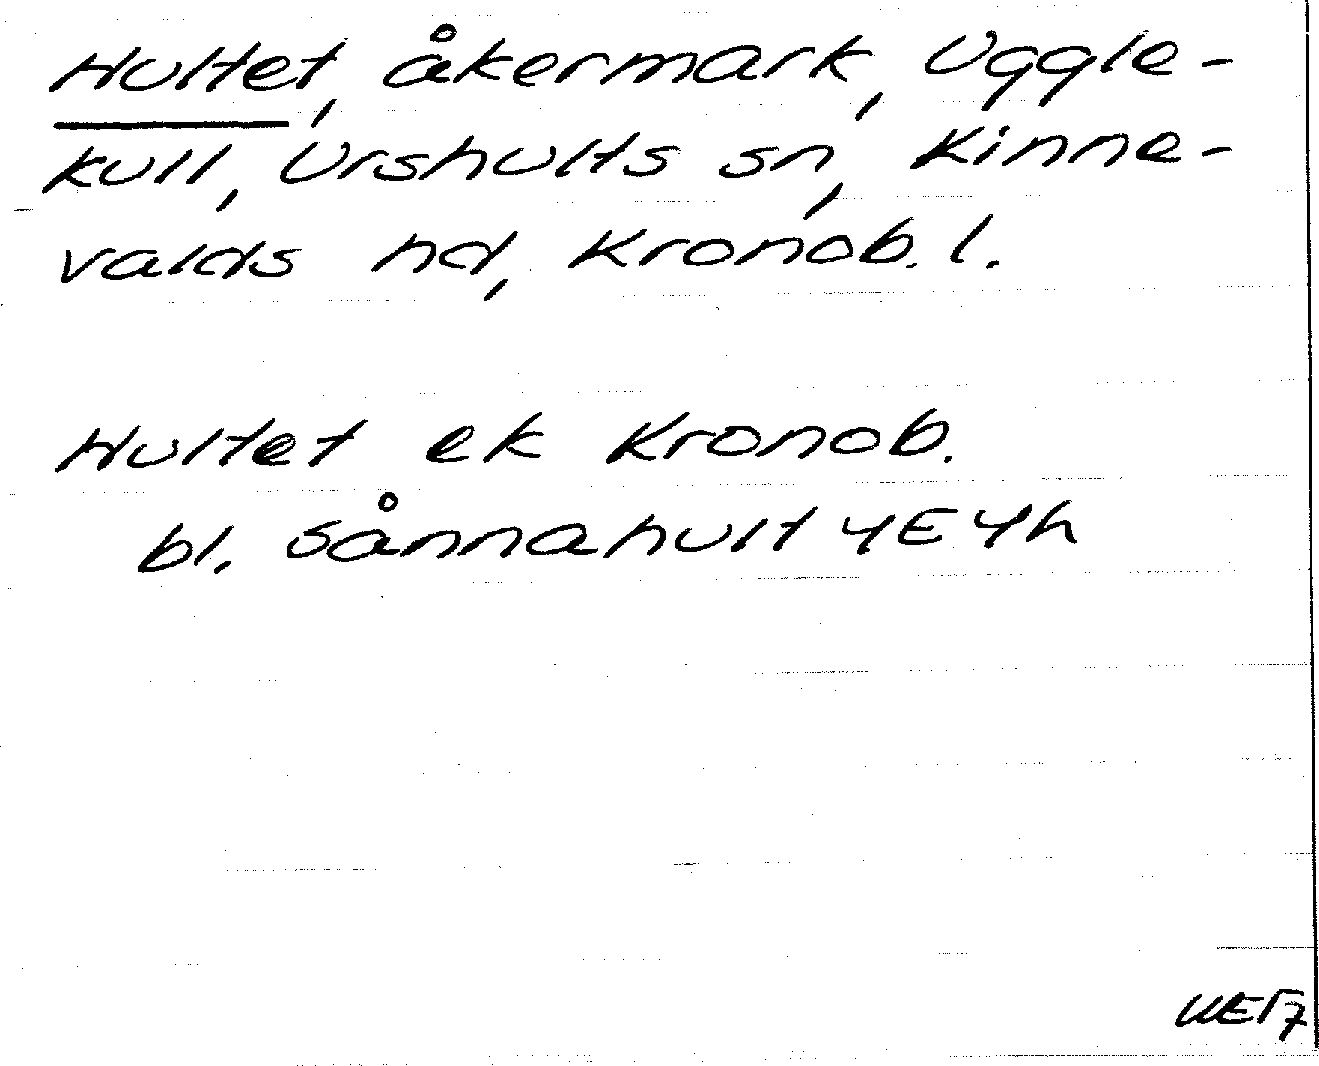 Hultet, åkermark, Uggle-
kull, Urshults sn, Kinne-
valds hd, Kronob. l.
Hultet ek Kronob.
bl. Sånnahult 4E4h